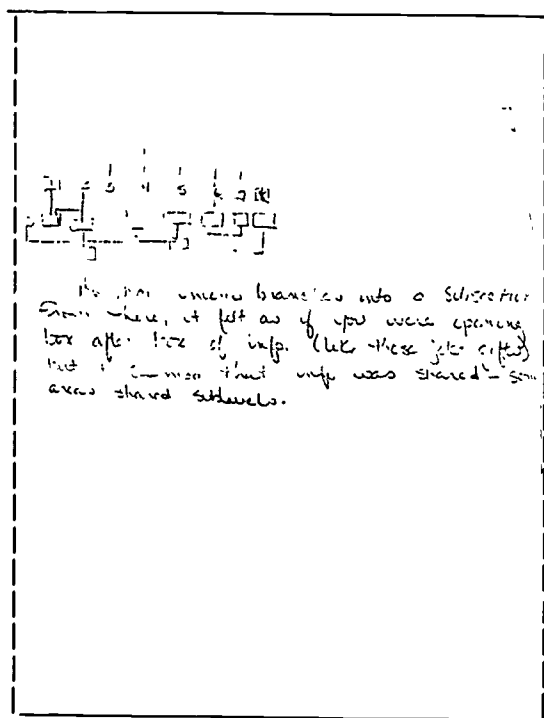 2 3 4 5 6 7
menu branches into a
From there, it felt as if you were opening
box after box of info. (like these joke gifts)
but that info was shared - some
areas shared sublevels.